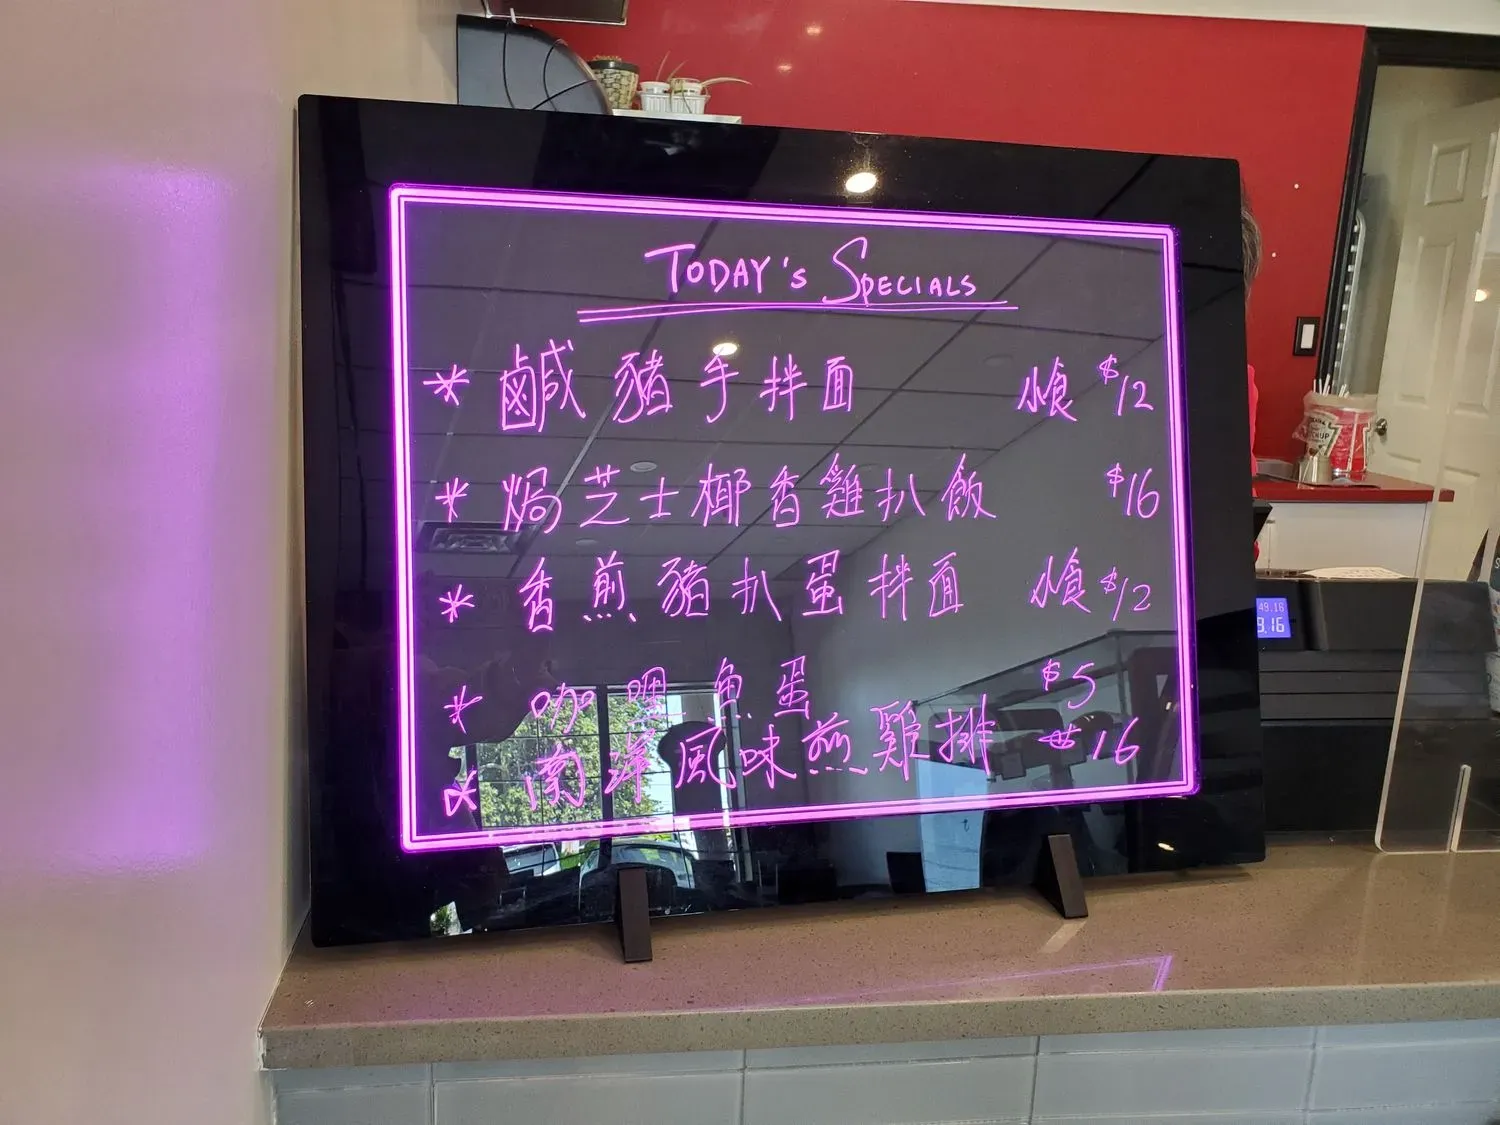 TODAY's SPECIALS
* 鹹豬手拌面 小食 $12
* 焗芝士椰香雞扒飯 $16
* 香煎豬扒蛋拌面 小食 $12
* 咖喱魚蛋 $5
* 南洋風味煎雞排 $16
49.16
9.16
KETCHUP